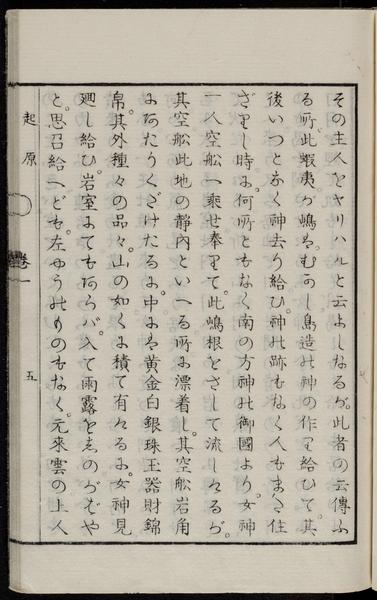 その主人をヤリハルと云よしなるが。此者の云傳ふ
る所。此蝦夷が嶋は。むかし島造の神の作り給ひて。其
後いつとなく神去り給ひ。神の跡もなく人もまさ住
ざりし時に。何所ともなく南の方神の御國より。女神
一人空舩へ乗せ奉りて。此嶋根をさして流しけるが。
其空舩此地の靜内といへる所に漂着し。其空舩岩角
にあたりくだけたるに。中には黄金白銀珠玉器財錦
帛。其外種々の品々。山の如くに積て有けるに。女神見
廻し給ひ。岩室にてもあらバ。入て雨露をしのがばや
と。思召給へども。左やうのものもなく。元來雲の上人
起原
卷一
五